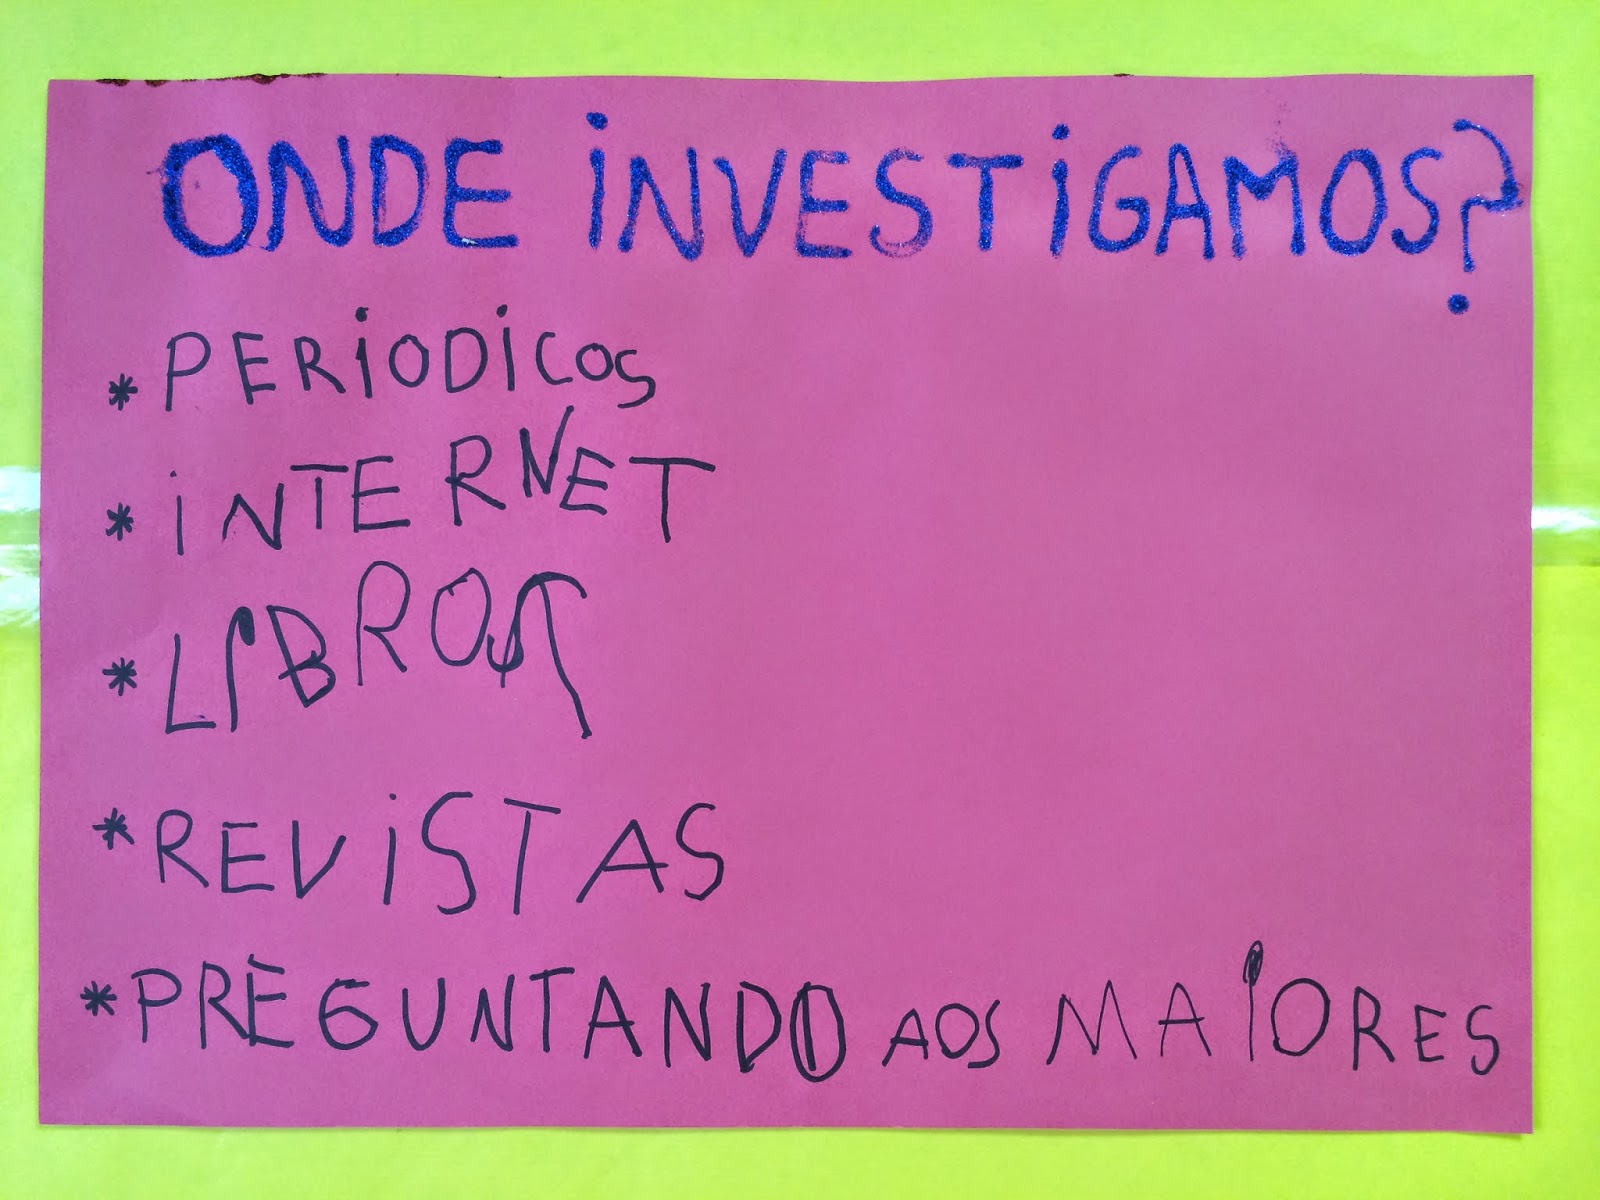 ONDE iNVESTiGAMOS?
* PERiODiCOS
* iNTERNET
* LiBROS
* REViSTAS
* PREGUNTANDO AOS MAiORES